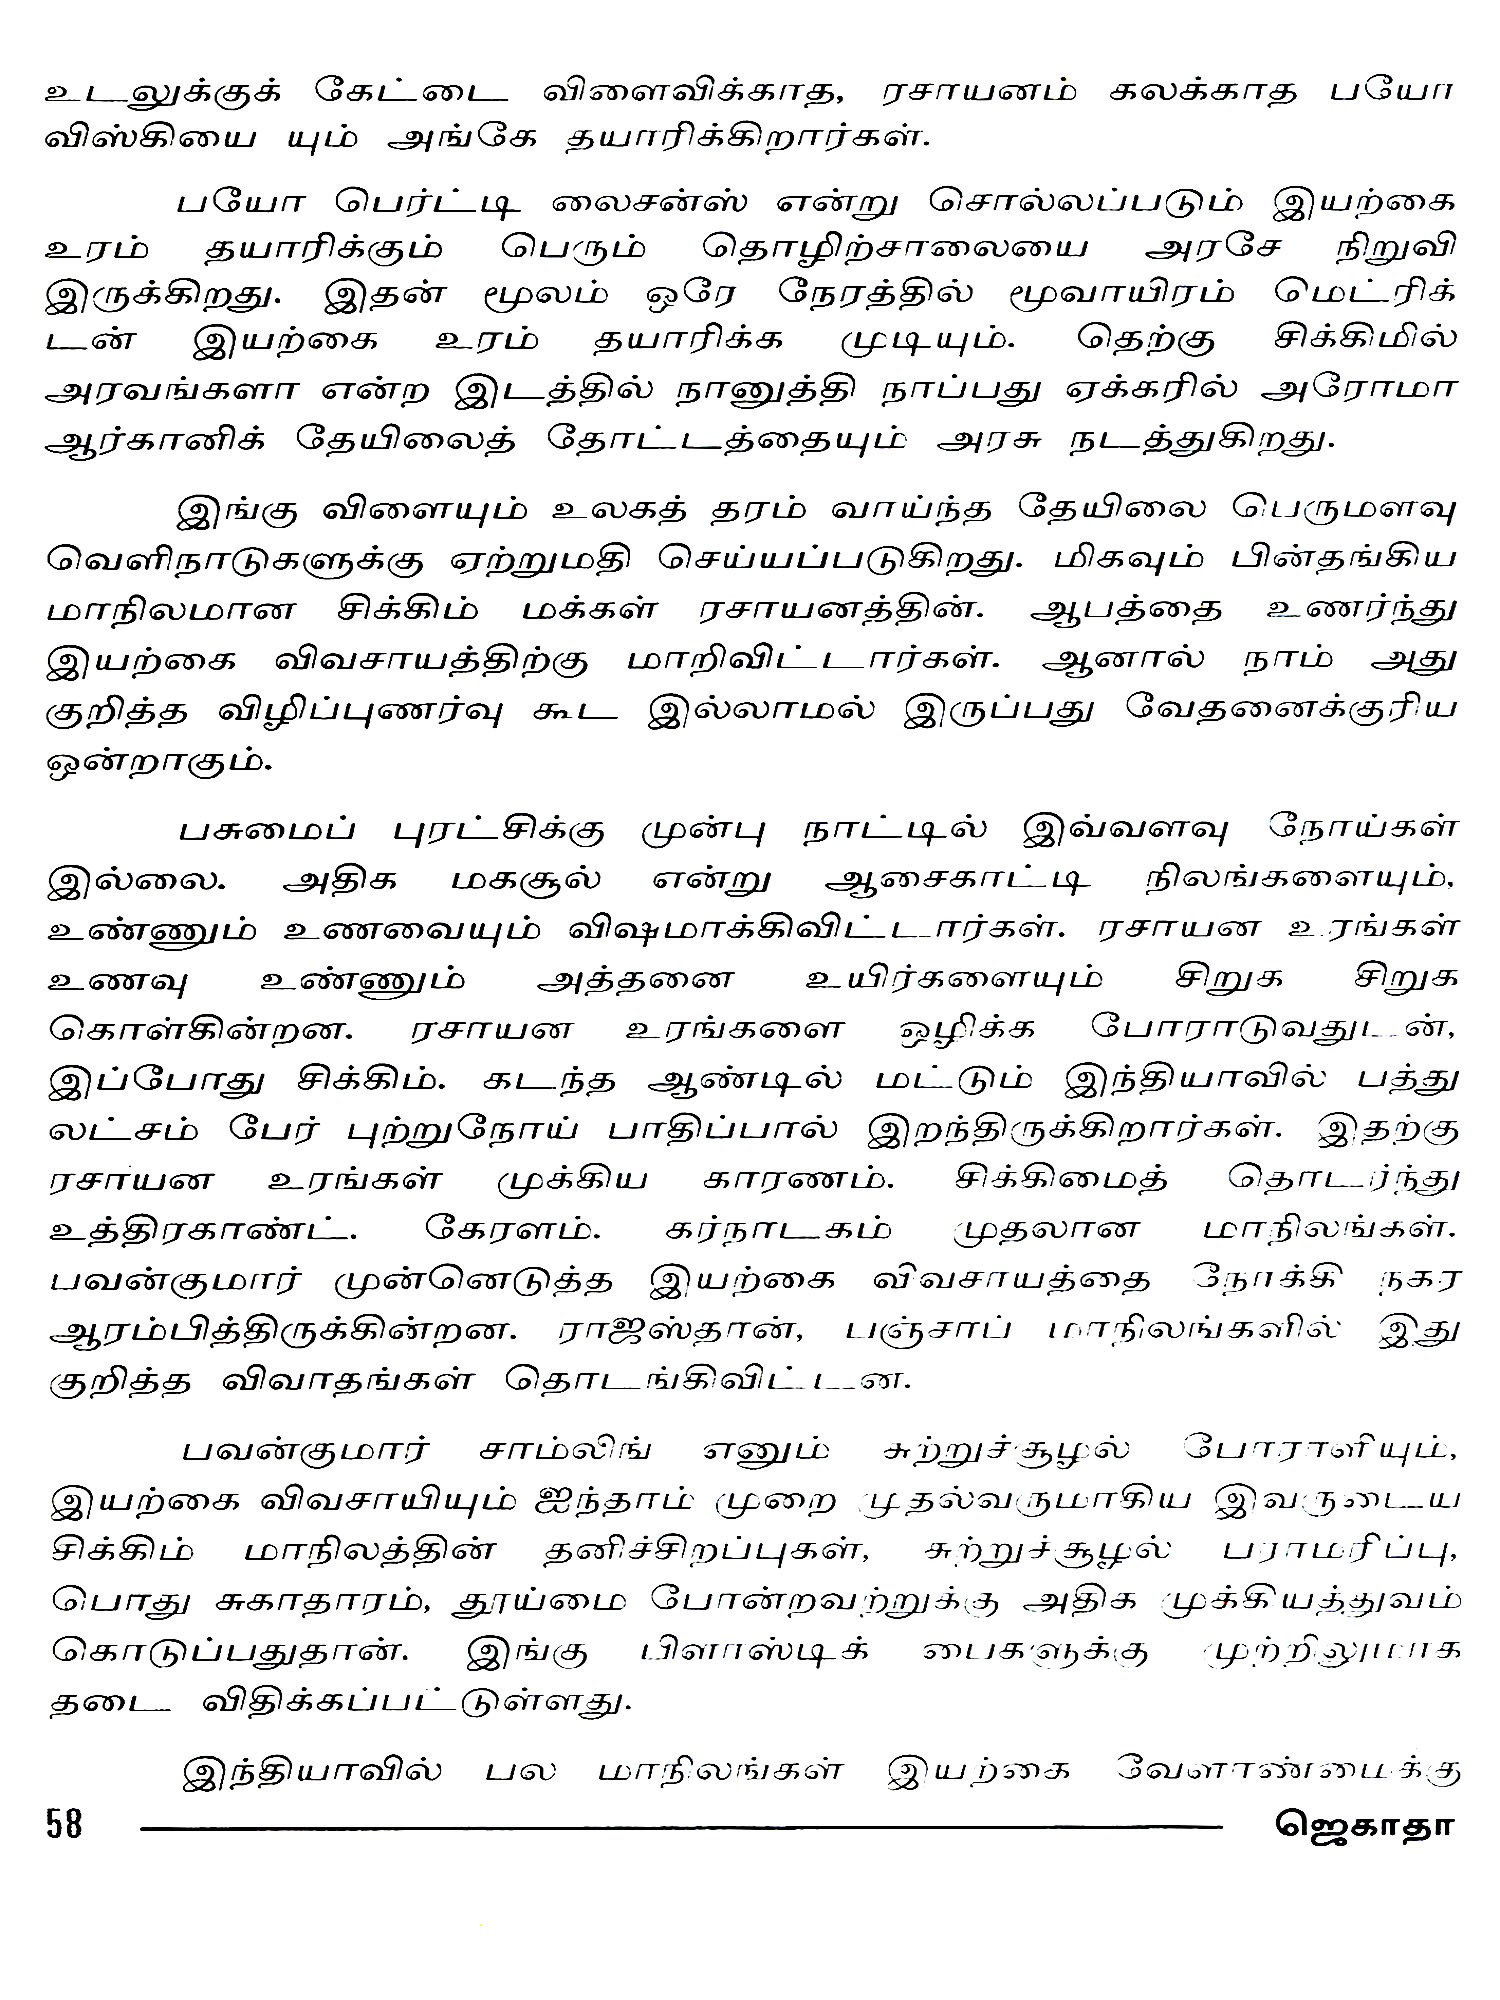 உடலுக்குக் கேட்டை விளைவிக்காத, ரசாயனம் கலக்காத பயோ
விஸ்கியை யும் அங்கே தயாரிக்கிறார்கள்.
பயோ பெர்ட்டி லைசன்ஸ் என்று சொல்லப்படும் இயற்கை
உரம் தயாரிக்கும் பெரும் தொழிற்சாலையை அரசே நிறுவி
இருக்கிறது. இதன் மூலம் ஒரே நேரத்தில் மூவாயிரம் மெட்ரிக்
டன் இயற்கை உரம் தயாரிக்க முடியும். தெற்கு சிக்கிமில்
அரவங்களா என்ற இடத்தில் நானுத்தி நாப்பது ஏக்கரில் அரோமா
ஆர்கானிக் தேயிலைத் தோட்டத்தையும் அரசு நடத்துகிறது.
இங்கு விளையும் உலகத் தரம் வாய்ந்த தேயிலை பெருமளவு
வெளிநாடுகளுக்கு ஏற்றுமதி செய்யப்படுகிறது. மிகவும் பின்தங்கிய
மாநிலமான சிக்கிம் மக்கள் ரசாயனத்தின். ஆபத்தை உணர்ந்து
இயற்கை விவசாயத்திற்கு மாறிவிட்டார்கள். ஆனால் நாம் அது
குறித்த விழிப்புணர்வு கூட இல்லாமல் இருப்பது வேதனைக்குரிய
ஒன்றாகும்.
பசுமைப் புரட்சிக்கு முன்பு நாட்டில் இவ்வளவு நோய்கள்
இல்லை. அதிக மகசூல் என்று ஆசைகாட்டி நிலங்களையும்,
உண்ணும் உணவையும் விஷமாக்கிவிட்டார்கள். ரசாயன உரங்கள்
உணவு உண்ணும் அத்தனை உயிர்களையும் சிறுக சிறுக
கொள்கின்றன. ரசாயன உரங்களை ஒழிக்க போராடுவதுடன்,
இப்போது சிக்கிம். கடந்த ஆண்டில் மட்டும் இந்தியாவில் பத்து
லட்சம் பேர் புற்றுநோய் பாதிப்பால் இறந்திருக்கிறார்கள். இதற்கு
ரசாயன உரங்கள் முக்கிய காரணம். சிக்கிமைத் தொடர்ந்து
உத்திரகாண்ட். கேரளம். கர்நாடகம் முதலான மாநிலங்கள்.
பவன்குமார் முன்னெடுத்த இயற்கை விவசாயத்தை நோக்கி நகர
ஆரம்பித்திருக்கின்றன. ராஜஸ்தான், பஞ்சாப் மாநிலங்களில் இது
குறித்த விவாதங்கள் தொடங்கிவிட்டன.
பவன்குமார் சாம்லிங் எனும் சுற்றுச்சூழல் போராளியும்,
இயற்கை விவசாயியும் ஐந்தாம் முறை முதல்வருமாகிய இவருடைய
சிக்கிம் மாநிலத்தின் தனிச்சிறப்புகள், சுற்றுச்சூழல் பராமரிப்பு,
பொது சுகாதாரம், தூய்மை போன்றவற்றுக்கு அதிக முக்கியத்துவம்
கொடுப்பதுதான். இங்கு பிளாஸ்டிக் பைகளுக்கு முற்றிலுமாக
தடை விதிக்கப்பட்டுள்ளது.
இந்தியாவில் பல மாநிலங்கள் இயற்கை வேளாண்மைக்கு
58 ஜெகாதா